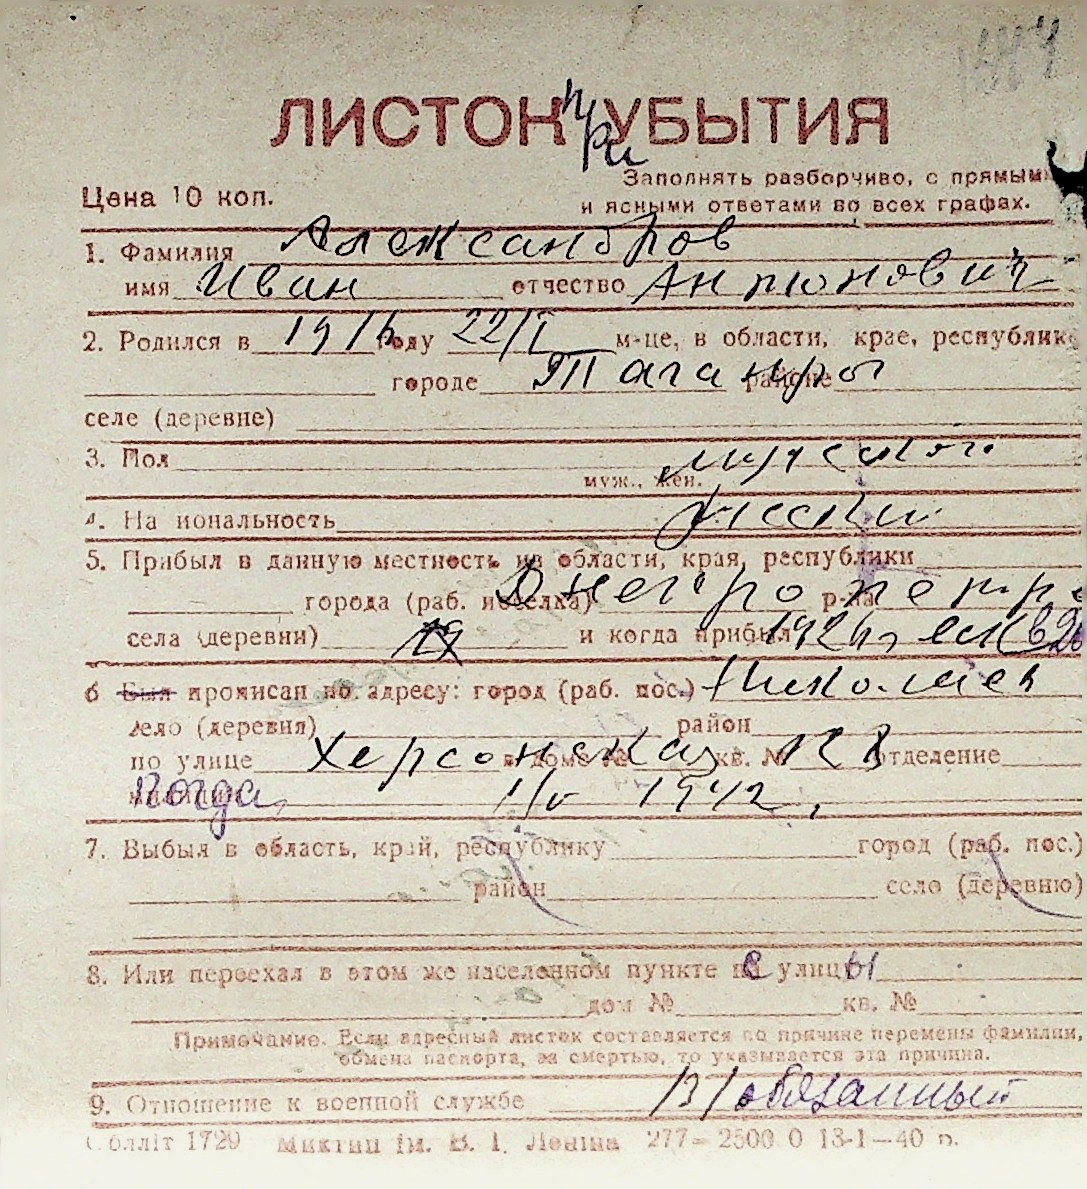 ЛИСТОК при УБЫТИЯ
Цена 10 коп.
Заполнять разборчиво, с прямыми
и ясными ответами во всех графах.
1. Фамилия Александров
имя Иван отчество Антонович
2. Родился в году 22/I м-це, в области, крае, республик
городе Таганрог районе
селе (деревне)
3. Пол мужской
муж., жен.
4. На иональность русский
5. Прибыл в данную местность из области, края, республики
города (раб. поселка) Днепропетр р-на
села (деревни) и когда прибыл
6 Был прописан по адресу: город (раб. пос.) Николаев
село (деревня) район
по улице Херсонская в доме № кв. № отделение
Когда 1942,
7. Выбыл в область, край, республику город (раб. пос.)
район село (деревню)
8. Или переехал в этом же населенном пункте с улицы
дом № кв. №
Примечание. Если адресный листок составляется по причине перемены фамилии,
обмена паспорта, за смертью, то указывается эта причина.
9. Отношение к военной службе В/обязанный
Обlліт 1729 Миктип ім. В. І. Леніна 277–2500 0 13-1–40 р.